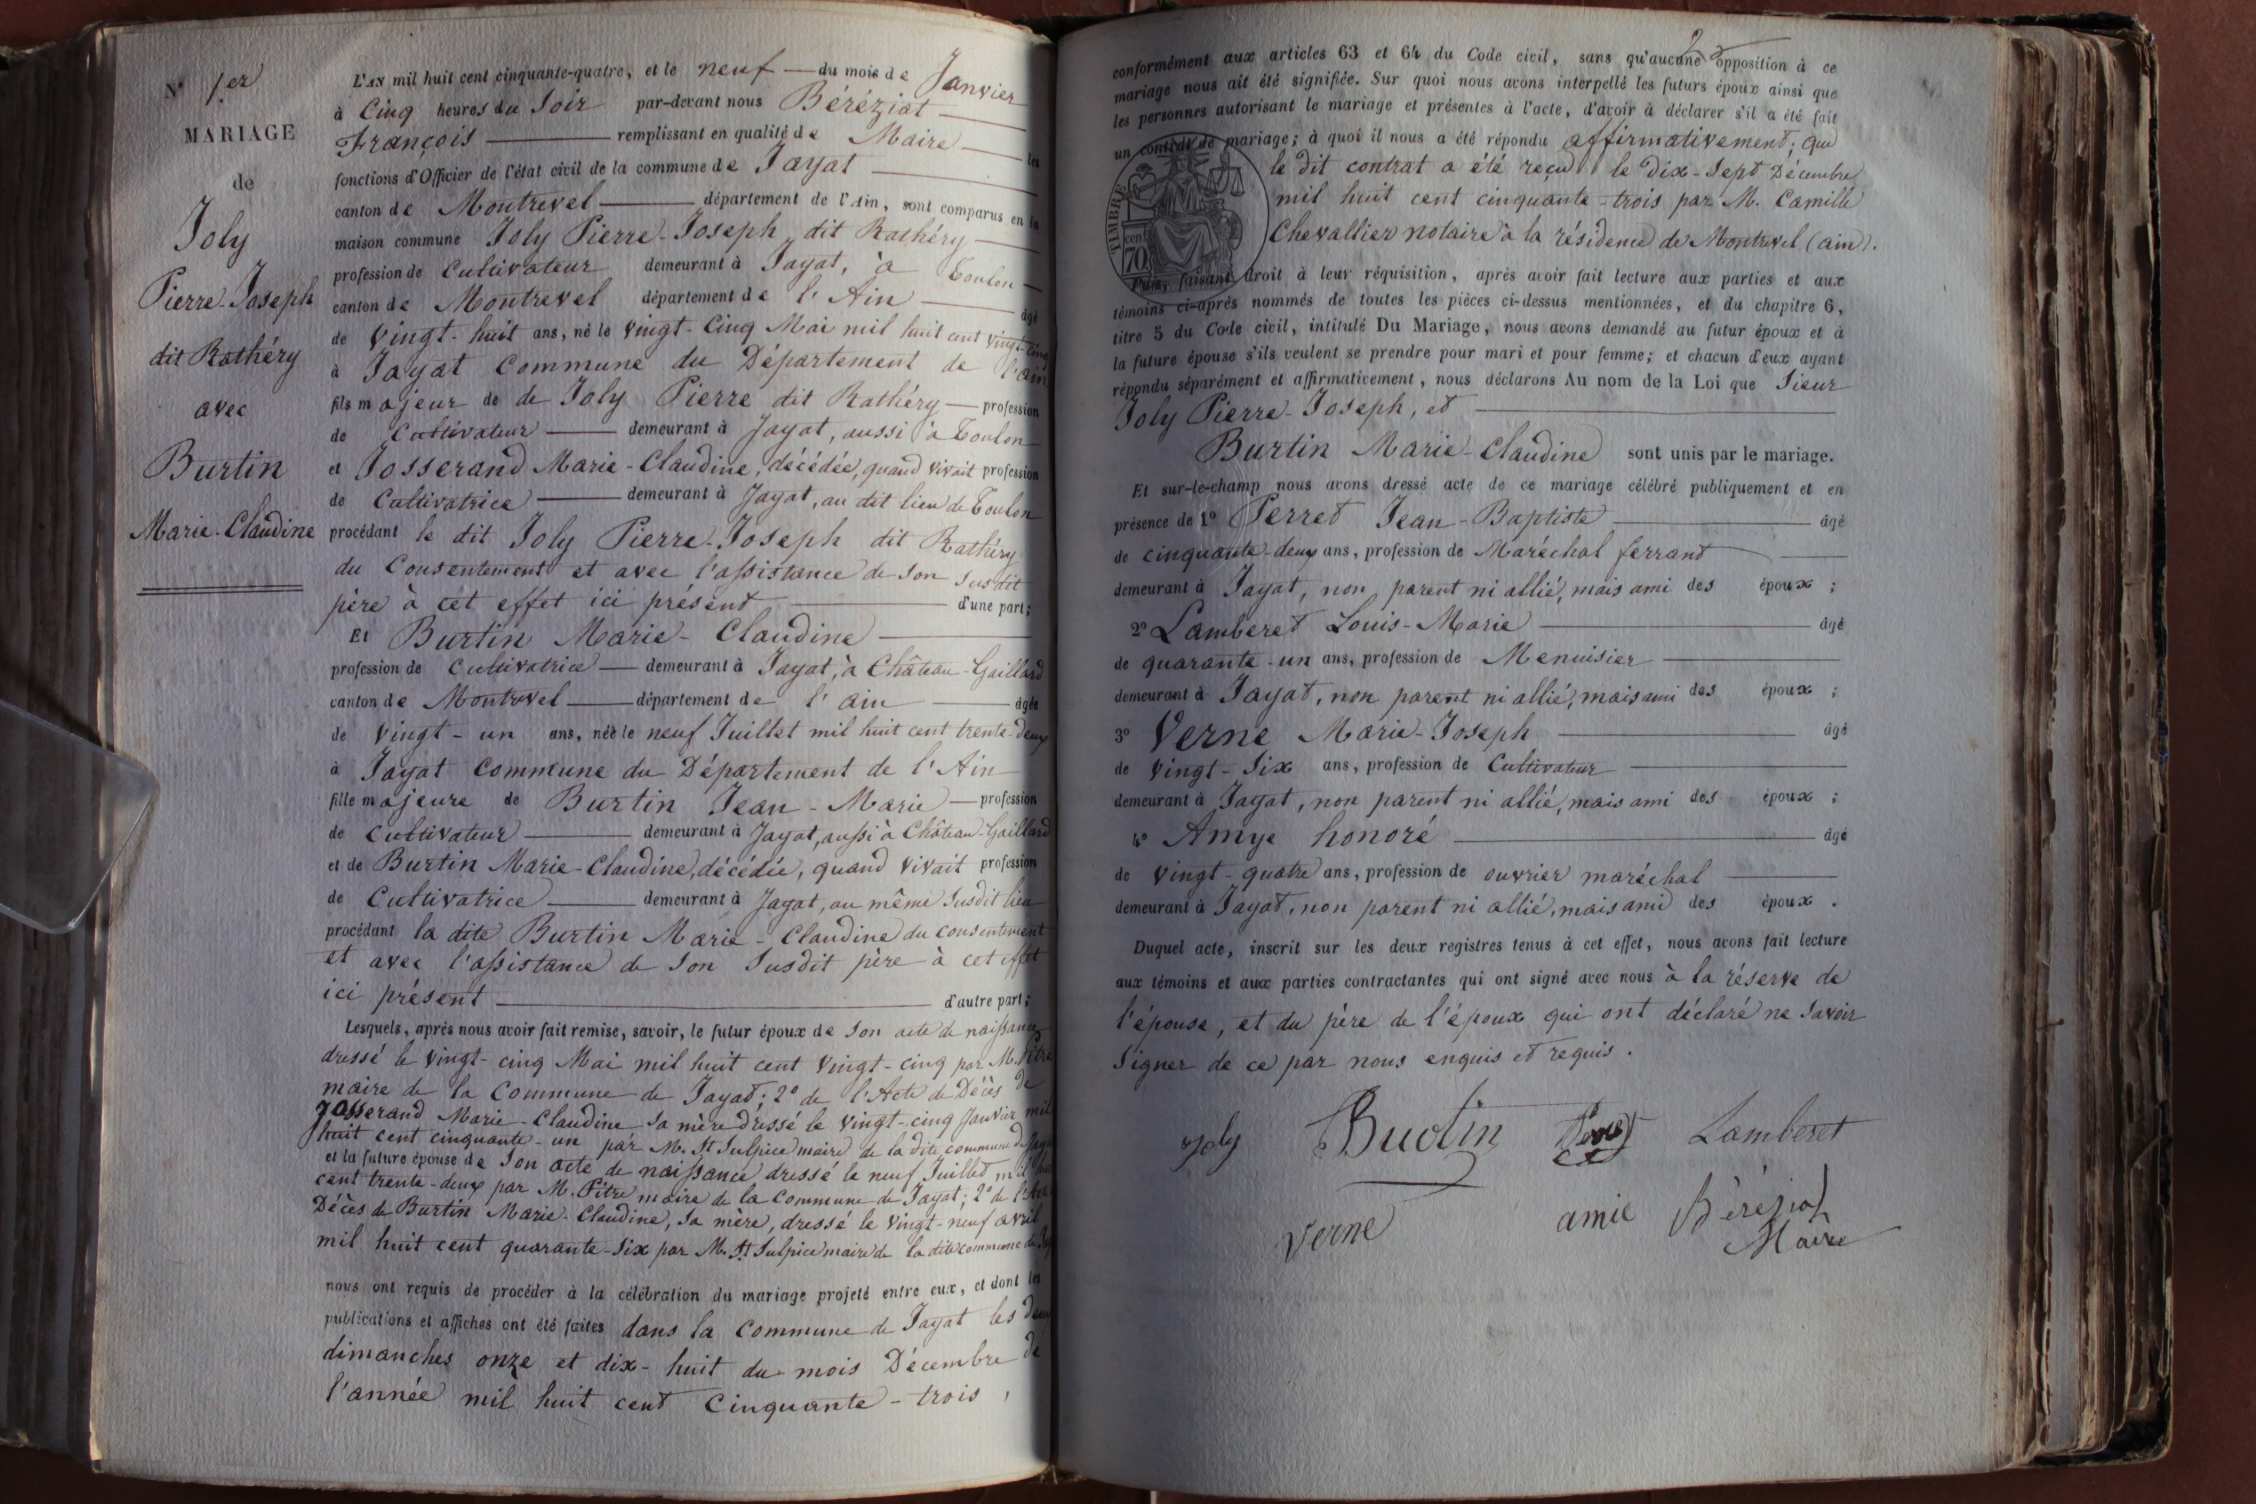 N° 1er
MARIAGE
de
Joly
Pierre-Joseph
dit Rathéry
avec
Burtin
Marie-Claudine
L'AN mil huit cent cinquante-quatre, et le neuf du mois de Janvier
à Cinq heures du Soir par-devant nous Béréziat
François remplissant en qualité de Maire les
fonctions d'Officier de l'état civil de la commune de Jayat
canton de Montrevel département de l'Ain, sont comparus en la
maison commune Joly Pierre-Joseph dit Rathéry
profession de Cultivateur demeurant à Jayat, à Toulon
canton de Montrevel département de l'Ain âgé
de Vingt-huit ans, né le Vingt-Cinq Mai mil huit cent vingt-cinq
à Jayat Commune du Département de l'Ain
fils majeur de de Joly Pierre dit Rathéry profession
de Cultivateur demeurant à Jayat, aussi à Toulon
et Josserand Marie-Claudine, décédée, quand vivait profession
de Cultivatrice demeurant à Jayat, au dit lieu de Toulon
procédant le dit Joly Pierre-Joseph dit Rathéry
du Consentement et avec l'assistance de son susdit
père à cet effet ici présent d'une part;
Et Burtin Marie-Claudine
profession de Cultivatrice demeurant à Jayat, à Château-Gaillard
canton de Montrevel département de l'Ain âgée
de Vingt-un ans, née le neuf Juillet mil huit cent trente-deux
à Jayat Commune du Département de l'Ain
fille majeure de Burtin Jean-Marie profession
de Cultivateur demeurant à Jayat, aussi à Château-Gaillard
et de Burtin Marie-Claudine, décédée, quand vivait profession
de Cultivatrice demeurant à Jayat, au même susdit lieu
procédant la dite Burtin Marie-Claudine du consentement
et avec l'assistance de son susdit père à cet effet
ici présent d'autre part;
Lesquels, après nous avoir fait remise, savoir, le futur époux de son acte de naissance
dressé le vingt-cinq Mai mil huit cent vingt-cinq par M. Pitre
maire de la Commune de Jayat; 2° de l'Acte de Décès de
Josserand Marie-Claudine sa mère dressé le vingt-cinq Janvier mil
huit cent cinquante-un par M. St Sulpice maire de la dite commune de Jayat
et la future épouse de son acte de naissance dressé le neuf Juillet mil huit
cent trente-deux par M. Pitre maire de la Commune de Jayat; 2° de l'Acte
Décès de Burtin Marie-Claudine, sa mère, dressé le vingt-neuf avril
mil huit cent quarante-six par M. St Sulpice maire de la dite commune de
nous ont requis de procéder à la célébration du mariage projeté entre eux, et dont les
publications et affiches ont été faites dans la commune de Jayat les deux
dimanches onze et dix-huit du mois Décembre de
l'année mil huit cent Cinquante-trois,
2
conformément aux articles 63 et 64 du Code civil, sans qu'aucune opposition à ce
mariage nous ait été signifiée. Sur quoi nous avons interpellé les futurs époux ainsi que
les personnes autorisant le mariage et présentes à l'acte, d'avoir à déclarer s'il a été fait
un contrat de mariage; à quoi il nous a été répondu affirmativement; que
le dit contrat a été reçu le dix-sept Décembre
mil huit cent cinquante-trois par M. Camille
Chevallier notaire à la résidence de Montrevel (ain).
TIMBRE
cent
70
Puis, faisant droit à leur réquisition, après avoir fait lecture aux parties et aux
témoins ci-après nommés de toutes les pièces ci-dessus mentionnées, et du chapitre 6,
titre 5 du Code civil, intitulé Du Mariage, nous avons demandé au futur époux et à
la future épouse s'ils veulent se prendre pour mari et pour femme; et chacun d'eux ayant
répondu séparément et affirmativement, nous déclarons Au nom de la Loi que Sieur
Joly Pierre-Joseph, et
Burtin Marie-Claudine sont unis par le mariage.
Et sur-le-champ nous avons dressé acte de ce mariage célébré publiquement et en
présence de 1° Perret Jean-Baptiste âgé
de cinquante-deux ans, profession de Maréchal ferrant
demeurant à Jayat, non parent ni allié, mais ami des époux;
2° Lamberet Louis-Marie âgé
de quarante-un ans, profession de Menuisier
demeurant à Jayat, non parent ni allié, mais ami des époux;
3° Verne Marie-Joseph âgé
de vingt-six ans, profession de Cultivateur
demeurant à Jayat, non parent ni allié, mais ami des époux;
4° Amye honoré âgé
de vingt-quatre ans, profession de ouvrier maréchal
demeurant à Jayat, non parent ni allié, mais ami des époux.
Duquel acte, inscrit sur les deux registres tenus à cet effet, nous avons fait lecture
aux témoins et aux parties contractantes qui ont signé avec nous à la réserve de
l'épouse, et du père de l'époux qui ont déclaré ne savoir
signer de ce par nous enquis et requis.
Joly Burtin Lamberet
Verne amie Béréziat
Maire